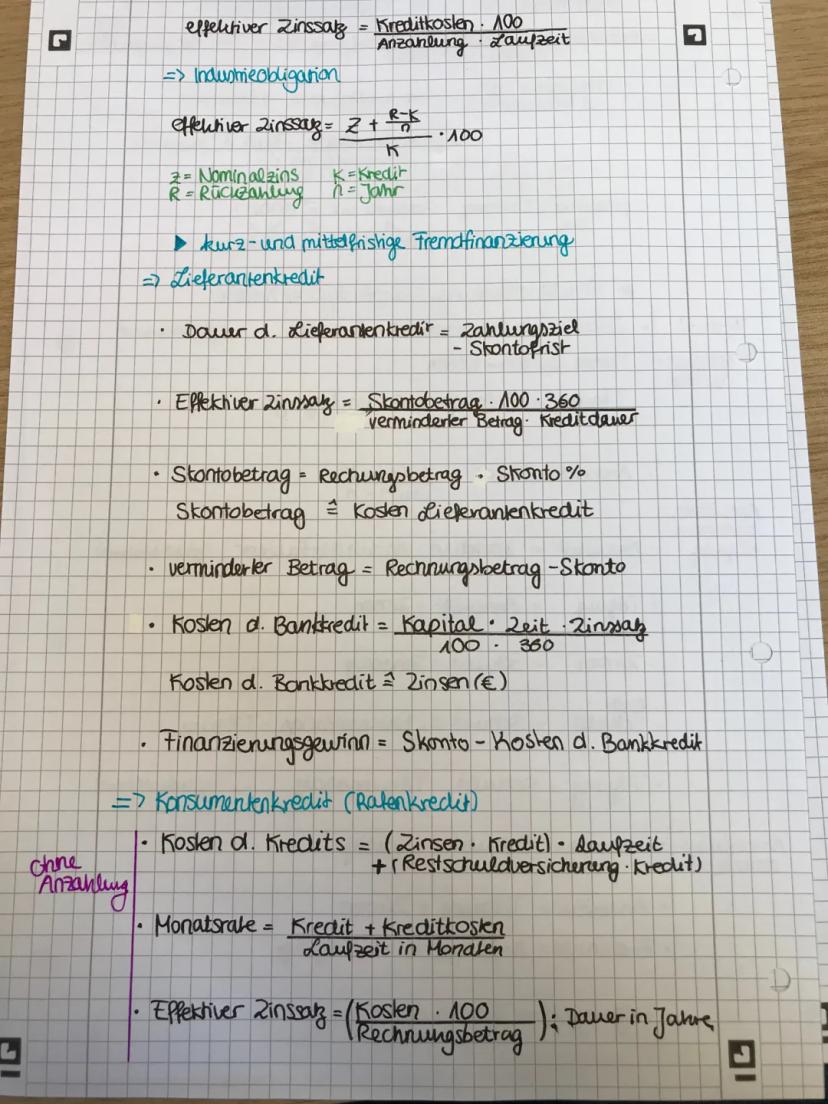 effektiver Zinssatz = Kreditkosten · 100
Anzahlung · Laufzeit
=> Industrieobligation
effektiver Zinssatz = Z + R-K
n
K
· 100
Z = Nominalzins K = Kredit
R = Rückzahlung n = Jahr
▶ kurz- und mittelfristige Fremdfinanzierung
=> Lieferantenkredit
· Dauer d. Lieferantenkredit = Zahlungsziel
- Skontofrist
· Effektiver Zinssatz = Skontobetrag · 100 · 360
verminderter Betrag · Kreditdauer
· Skontobetrag = Rechungsbetrag · Skonto %
Skontobetrag ≙ Kosten Lieferantenkredit
· verminderter Betrag = Rechnungsbetrag - Skonto
· Kosten d. Bankkredit = Kapital · Zeit · Zinssatz
100 · 360
Kosten d. Bankkredit ≙ Zinsen (€)
· Finanzierungsgewinn = Skonto - Kosten d. Bankkredit
=> Konsumentenkredit (Ratenkredit)
ohne
Anzahlung
· Kosten d. Kredits = (Zinsen · Kredit) · Laufzeit
+ (Restschuldversicherung · Kredit)
· Monatsrate = Kredit + Kreditkosten
Laufzeit in Monaten
· Effektiver Zinssatz = (Kosten · 100
Rechnungsbetrag) : Dauer in Jahre